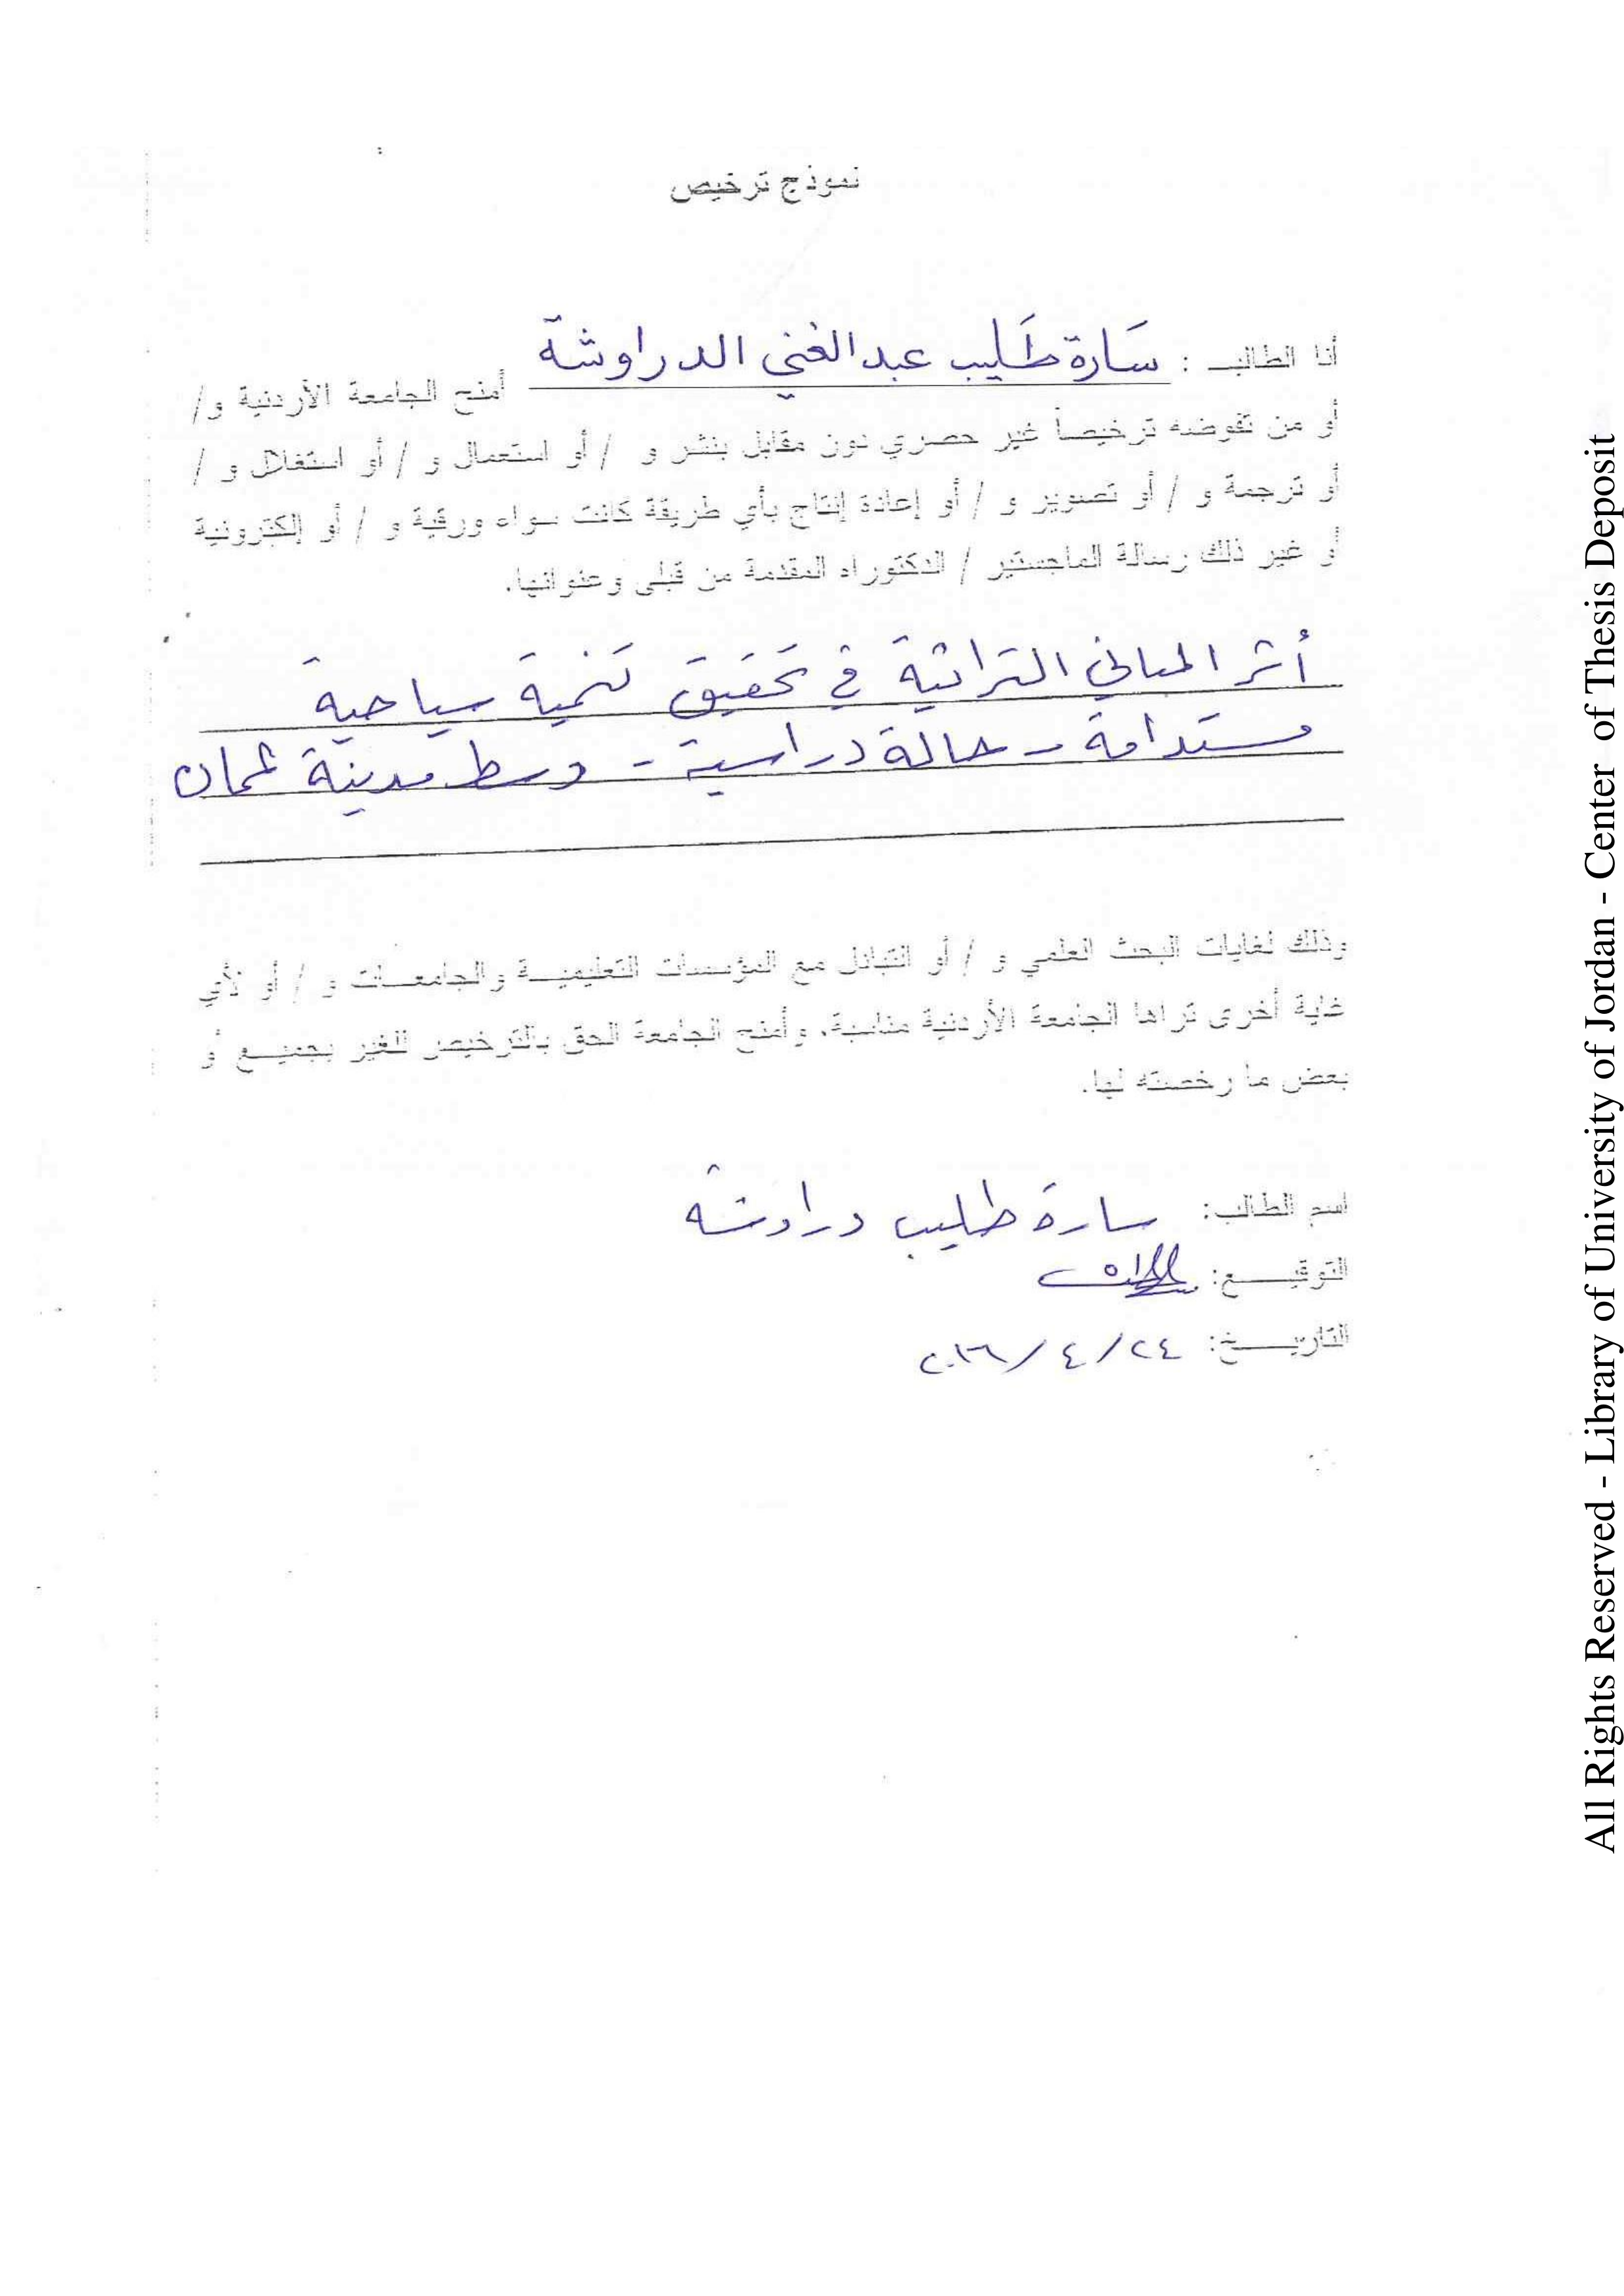 نموذج ترخيص
أنا الطالب : سَارة طَليب عبد الغني الدراوشة أمنح الجامعة الأردنية و/
أو من تفوضه ترخيصاً غير حصري دون مقابل بنشر و / أو استعمال و / أو استغلال و /
أو ترجمة و / أو تصوير و / أو إعادة إنتاج بأي طريقة كانت سواء ورقية و / أو إلكترونية
أو غير ذلك رسالة الماجستير / الدكتوراه المقدمة من قبلي وعنوانها.
أثر المباني التراثية في تحقيق تنمية سياحية
مستدامة - حالة دراسية - وسط مدينة عمان
وذلك لغايات البحث العلمي و / أو التبادل مع المؤسسات التعليميـــة والجامعـــات و / أو لأي
غاية أخرى تراها الجامعة الأردنية مناسبة، وأمنح الجامعة الحق بالترخيص للغير بجميـــع أو
بعض ما رخصته لها.
اسم الطالب: سارة طليب دراوشة
التوقيـــع:
التاريـــخ: ٢٤/ ٤ /٢٠١٦
All Rights Reserved - Library of University of Jordan - Center of Thesis Deposit